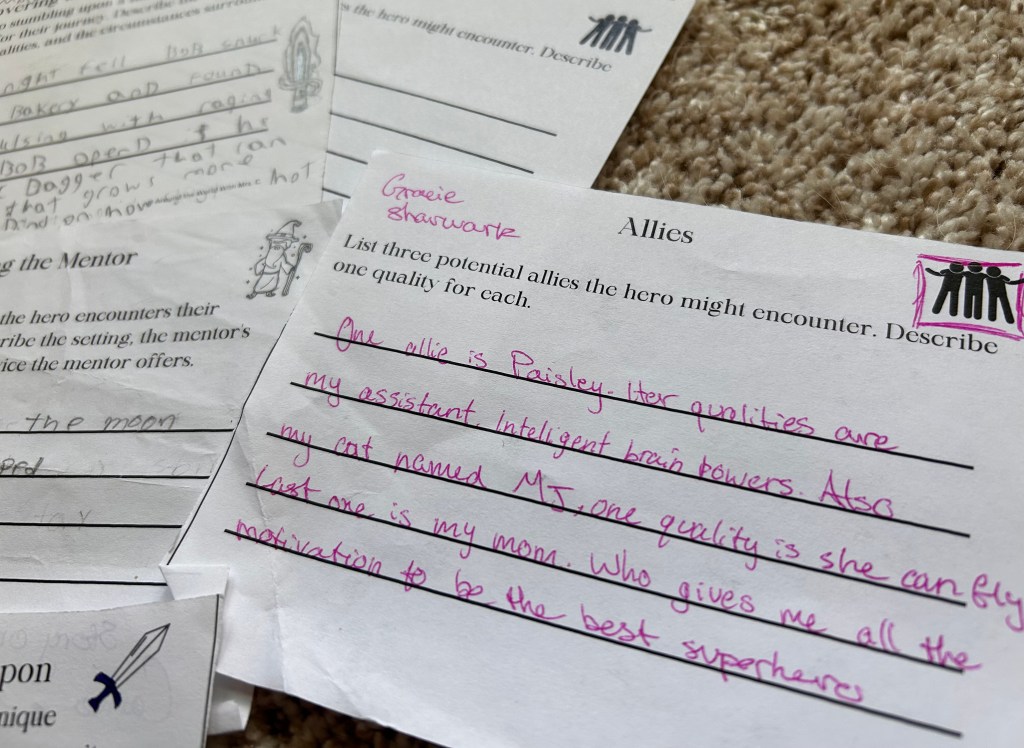 overing
o stumbling upon a
for their journey. Describe the
alities, and the circumstances
night fell BoB snuck
Baker and Found
with raging
BoB opend
Dagger that can
that grows more
Hot
s the hero might encounter. Describe
g the Mentor
the hero encounters their
ribe the setting, the mentor's
ice the mentor offers.
the moon
Gracie
Sharwark
Allies
List three potential allies the hero might encounter. Describe
one quality for each.
One allie is Paisley. Her qualities are
my assistant. Inteligent brain powers. Also
my cat named MJ, one quality is she can fly
Last one is my mom. Who gives me all the
motivation to be the best superheros
pon
nique